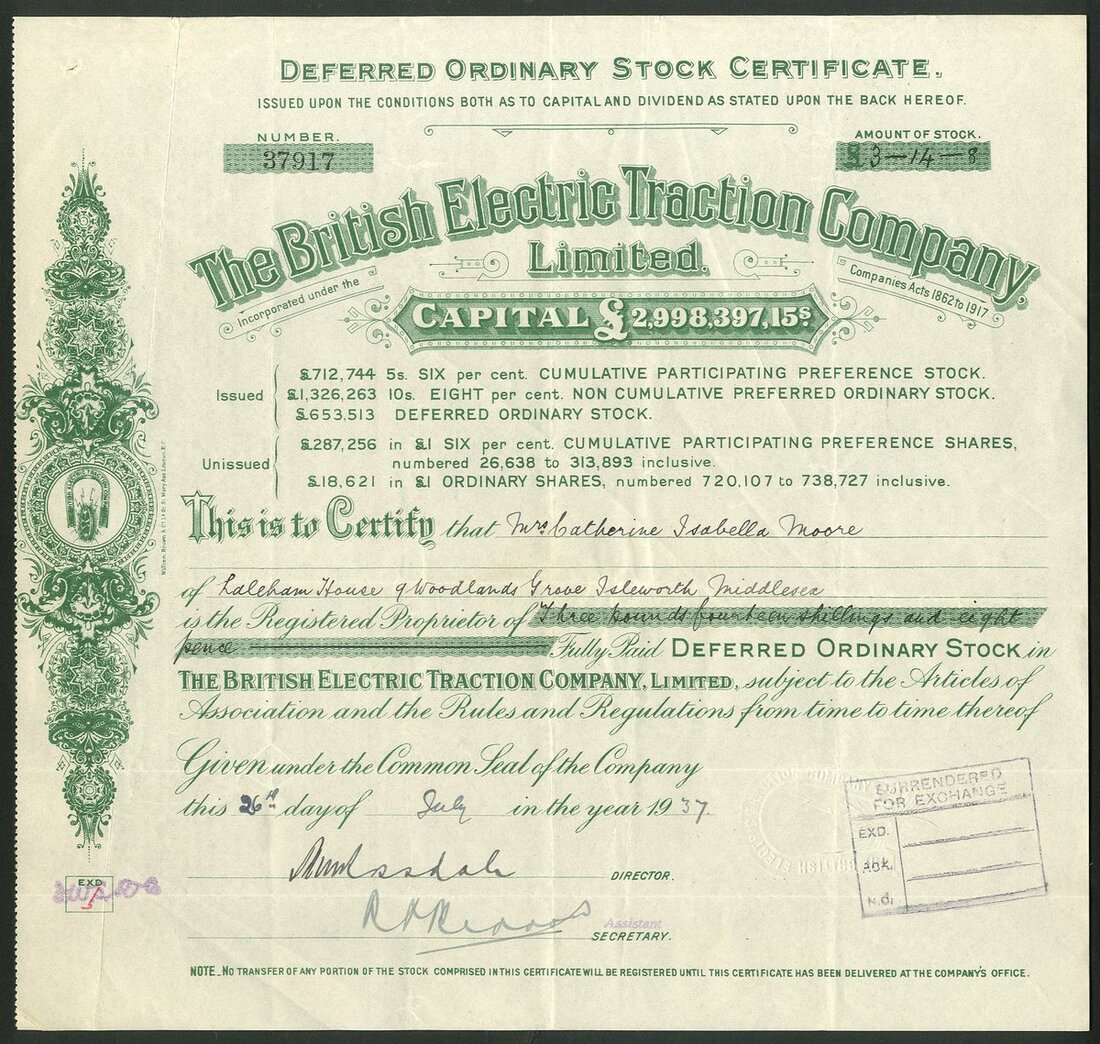 DEFERRED ORDINARY STOCK CERTIFICATE.
ISSUED UPON THE CONDITIONS BOTH AS TO CAPITAL AND DIVIDEND AS STATED UPON THE BACK HEREOF.
NUMBER.
37917
AMOUNT OF STOCK.
£3-14-8
The British Electric Traction Company,
Limited.
Incorporated under the
Companies Acts 1862 to 1917
CAPITAL £2,998,397,15s
Issued
£712,744 5s. SIX per cent. CUMULATIVE PARTICIPATING PREFERENCE STOCK.
£1,326,263 10s. EIGHT per cent. NON CUMULATIVE PREFERRED ORDINARY STOCK.
£653,513 DEFERRED ORDINARY STOCK.
Unissued
£287,256 in £1 SIX per cent. CUMULATIVE PARTICIPATING PREFERENCE SHARES,
numbered 26,638 to 313,893 inclusive.
£18,621 in £1 ORDINARY SHARES, numbered 720,107 to 738,727 inclusive.
This is to Certify that Mrs Catherine Isabella Moore
of Laleham House 9 Woodlands Grove Isleworth Middlesex
is the Registered Proprietor of Three pounds fourteen shillings and eight
pence Fully Paid DEFERRED ORDINARY STOCK in
THE BRITISH ELECTRIC TRACTION COMPANY, LIMITED, subject to the Articles of
Association and the Rules and Regulations from time to time thereof
Given under the Common Seal of the Company
this 26th day of July in the year 1937.
SURRENDERED
FOR EXCHANGE
EXD.
N.C.
DIRECTOR.
EXD.
Assistant
SECRETARY.
NOTE_NO TRANSFER OF ANY PORTION OF THE STOCK COMPRISED IN THIS CERTIFICATE WILL BE REGISTERED UNTIL THIS CERTIFICATE HAS BEEN DELIVERED AT THE COMPANY'S OFFICE.